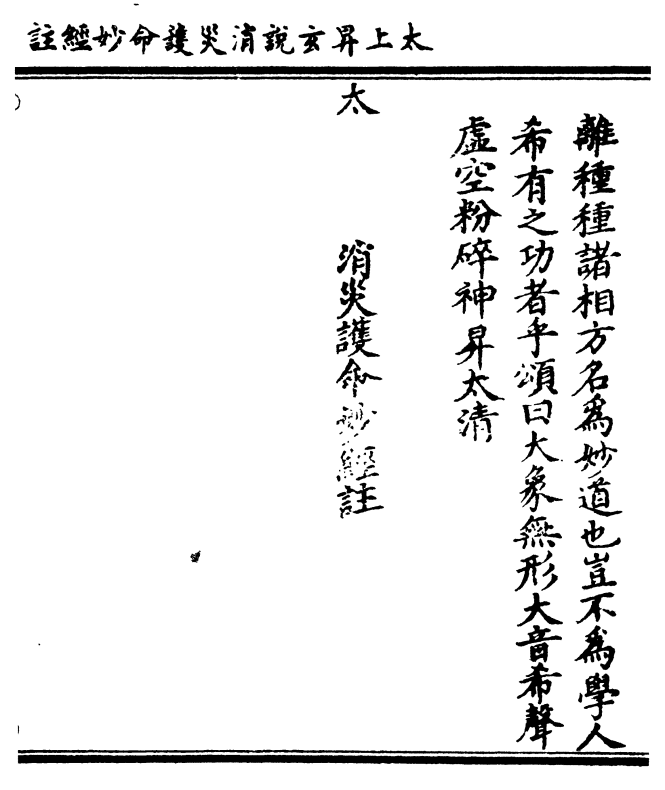 太上昇玄說消災護命妙經註
離種種諸相方名爲妙道也豈不爲學人
希有之功者乎頌曰大象無形大音希聲
虛空粉碎神昇太清
太 消災護命妙經註